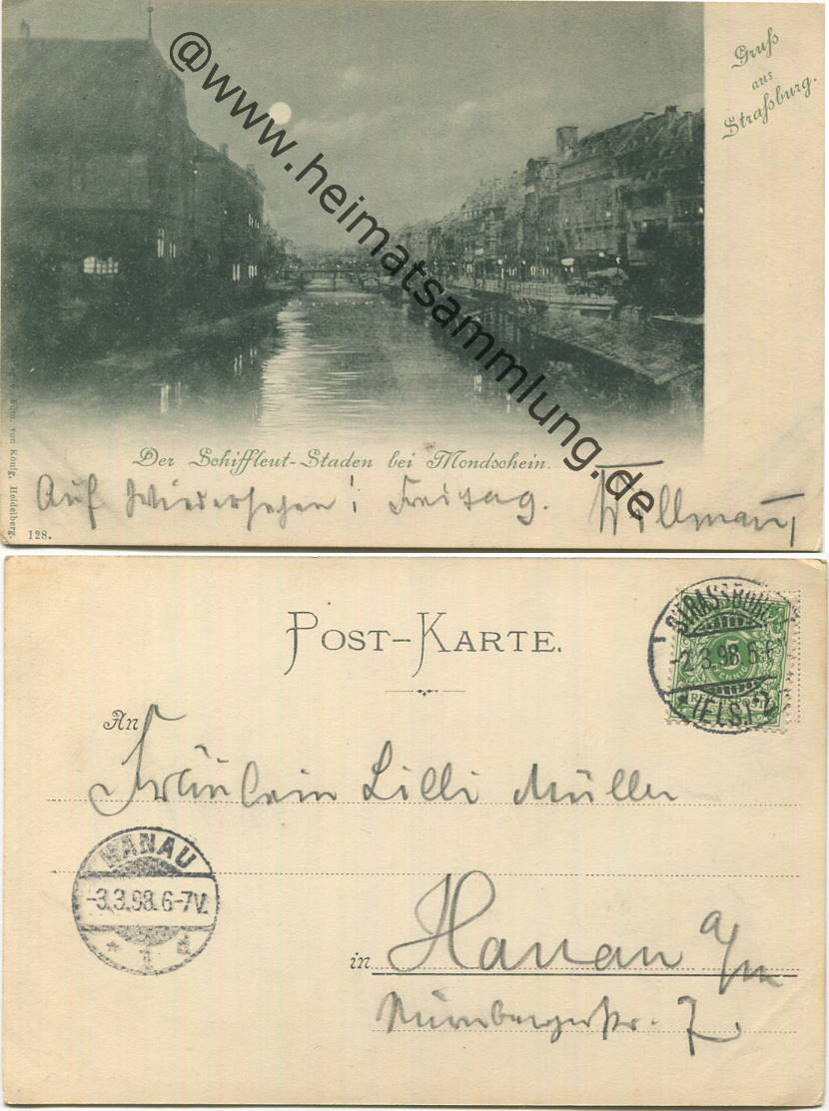 Gruß
aus
Straßburg.
@www.heimatsammlung.de
Der Schiffleut-Staden bei Mondschein.
von König, Heidelberg.
128.
Auf Wiedersehen! Freitag. Willmann
POST-KARTE.
STRASSBURG
-2.3.98 5-6
* (ELS.) 2
An
Fräulein Lilli Müller
HANAU
-3.3.98.6-7V.
* 1 d
in Hanau a/m
Nürnbergerstr. 7